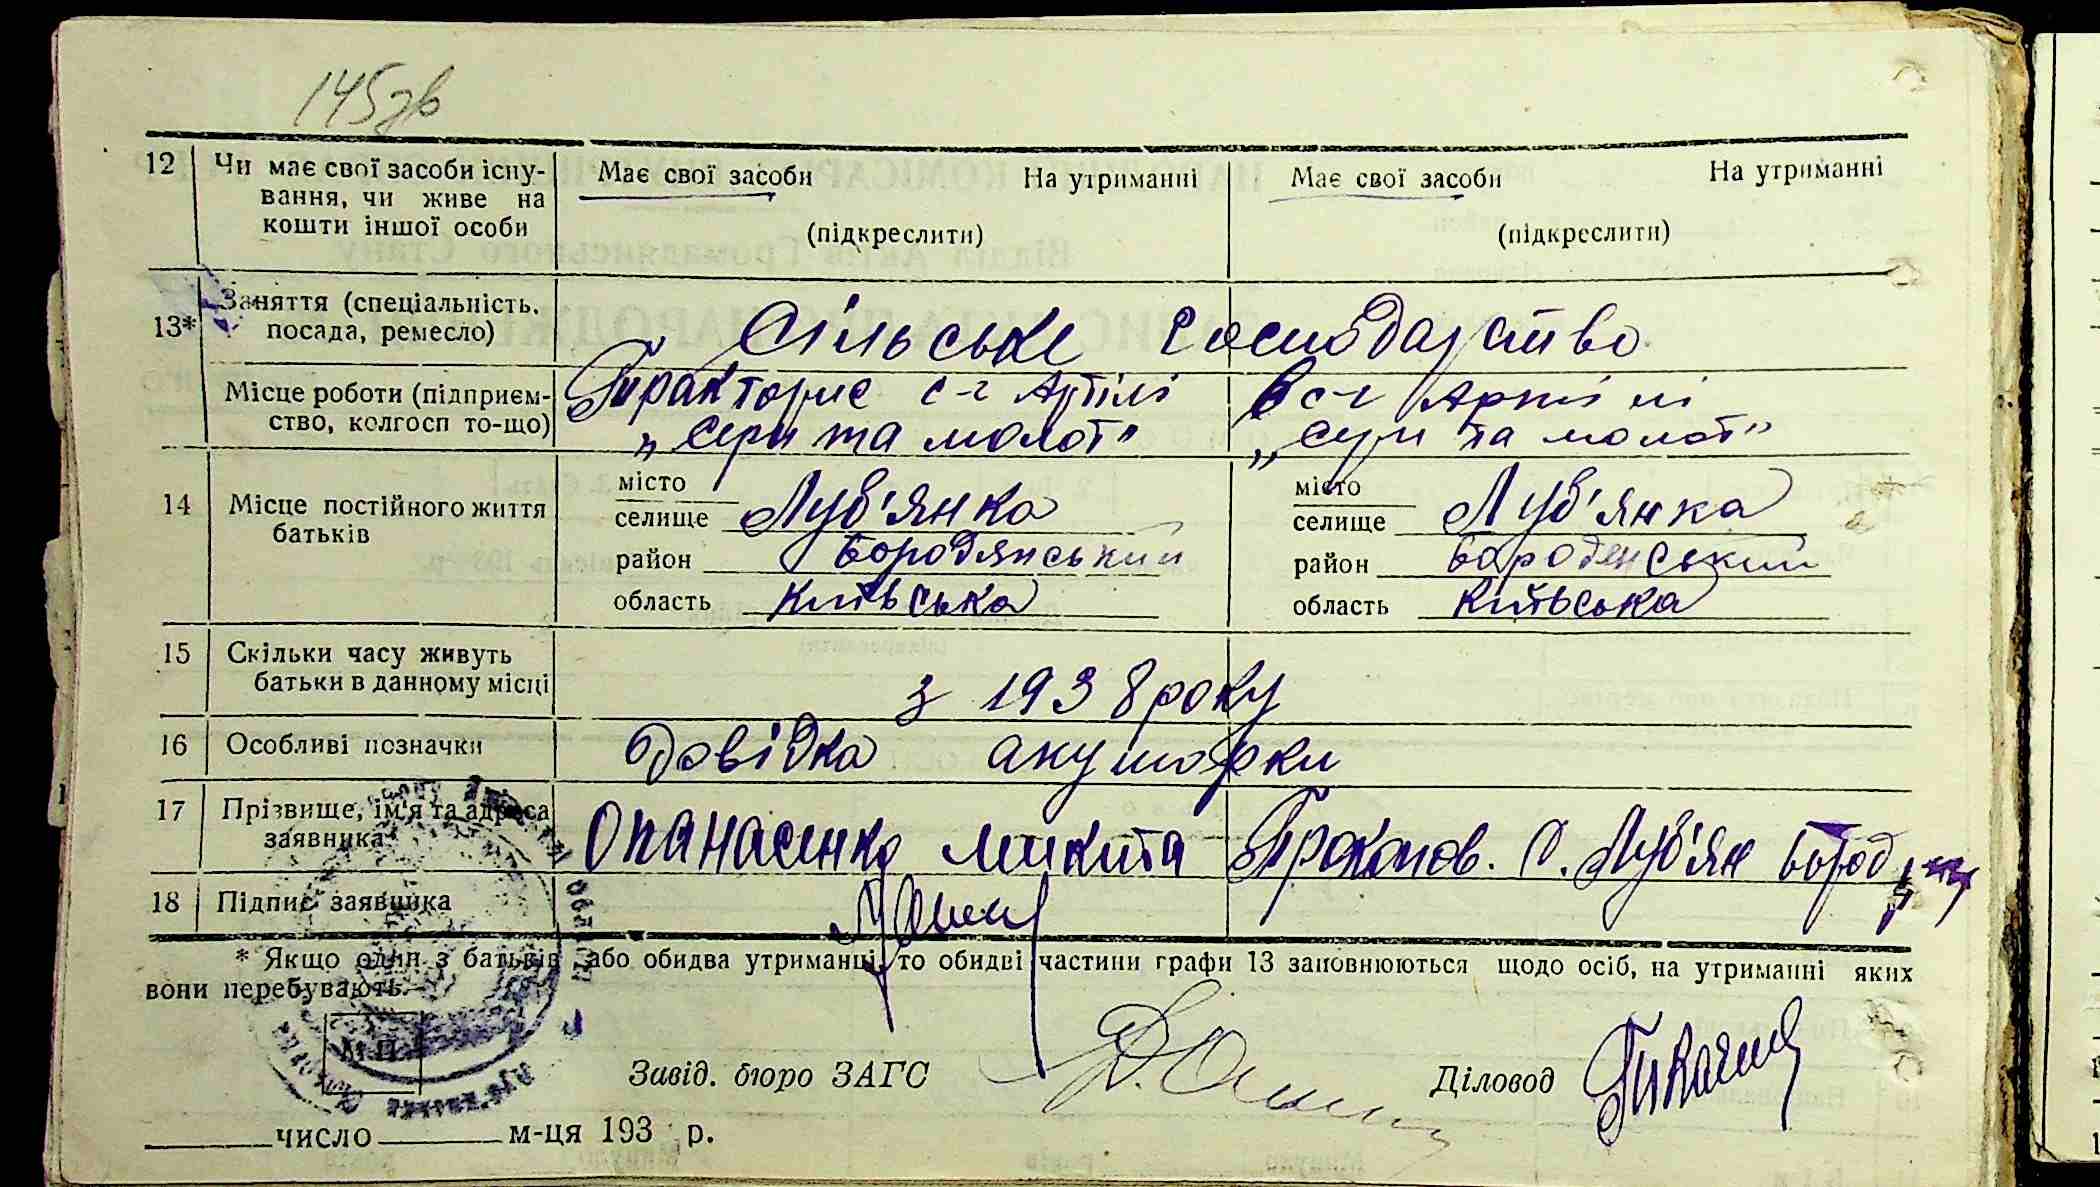 145зв
12 Чи має свої засоби існу- Має свої засоби На утриманні Має свої засоби На утриманні
вання, чи живе на
кошти іншої особи (підкреслити) (підкреслити)
13* Заняття (спеціальність, посада, ремесло) Сільське господарство
Місце роботи (підприєм- Тракторис с-г Артілі В с-г Артілі
ство, колгосп то-що) „Серп та молот" „Серп та молот"
14 Місце постійного життя батьків
місто місто
селище Луб'янка селище Луб'янка
район Бородянський район Бороденський
область Київська область Київська
15 Скільки часу живуть
батьки в данному місці з 1938 року
16 Особливі позначки Довідка акушорки
17 Прізвище, ім'я та адреса
заявника Опанасенко Микита Прокопов. С. Луб'ян Бород
18 Підпис заявника
* Якщо один з батьків або обидва утриманці, то обидві частини графи 13 заповнюються щодо осіб, на утриманні яких
вони перебувають.
М.П.
Завід. бюро ЗАГС Діловод
число м-ця 193 р.